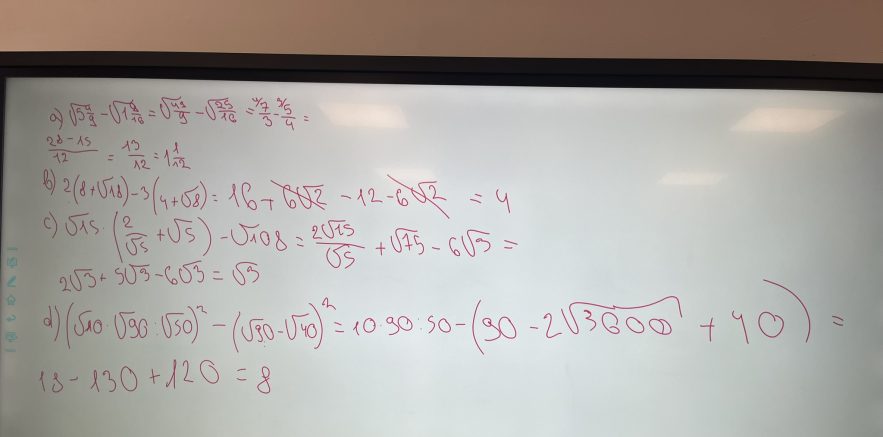 a) √5 4/9 - √1 9/16 = √49/9 - √25/16 = 4/7/3 - 3/5/4 =
28-15/12 = 13/12 = 1 1/12
b) 2(8+√18) - 3(4+√8) = 16 + 6√2 - 12 - 6√2 = 4
c) √15 · (2/√5 + √5) - √108 = 2√15/√5 + √75 - 6√3 =
2√3 + 5√3 - 6√3 = √3
d) (√10 · √90 : √50)² - (√90 - √40)² = 10·90:50 - (90 - 2√3600 + 40) =
18 - 130 + 120 = 8